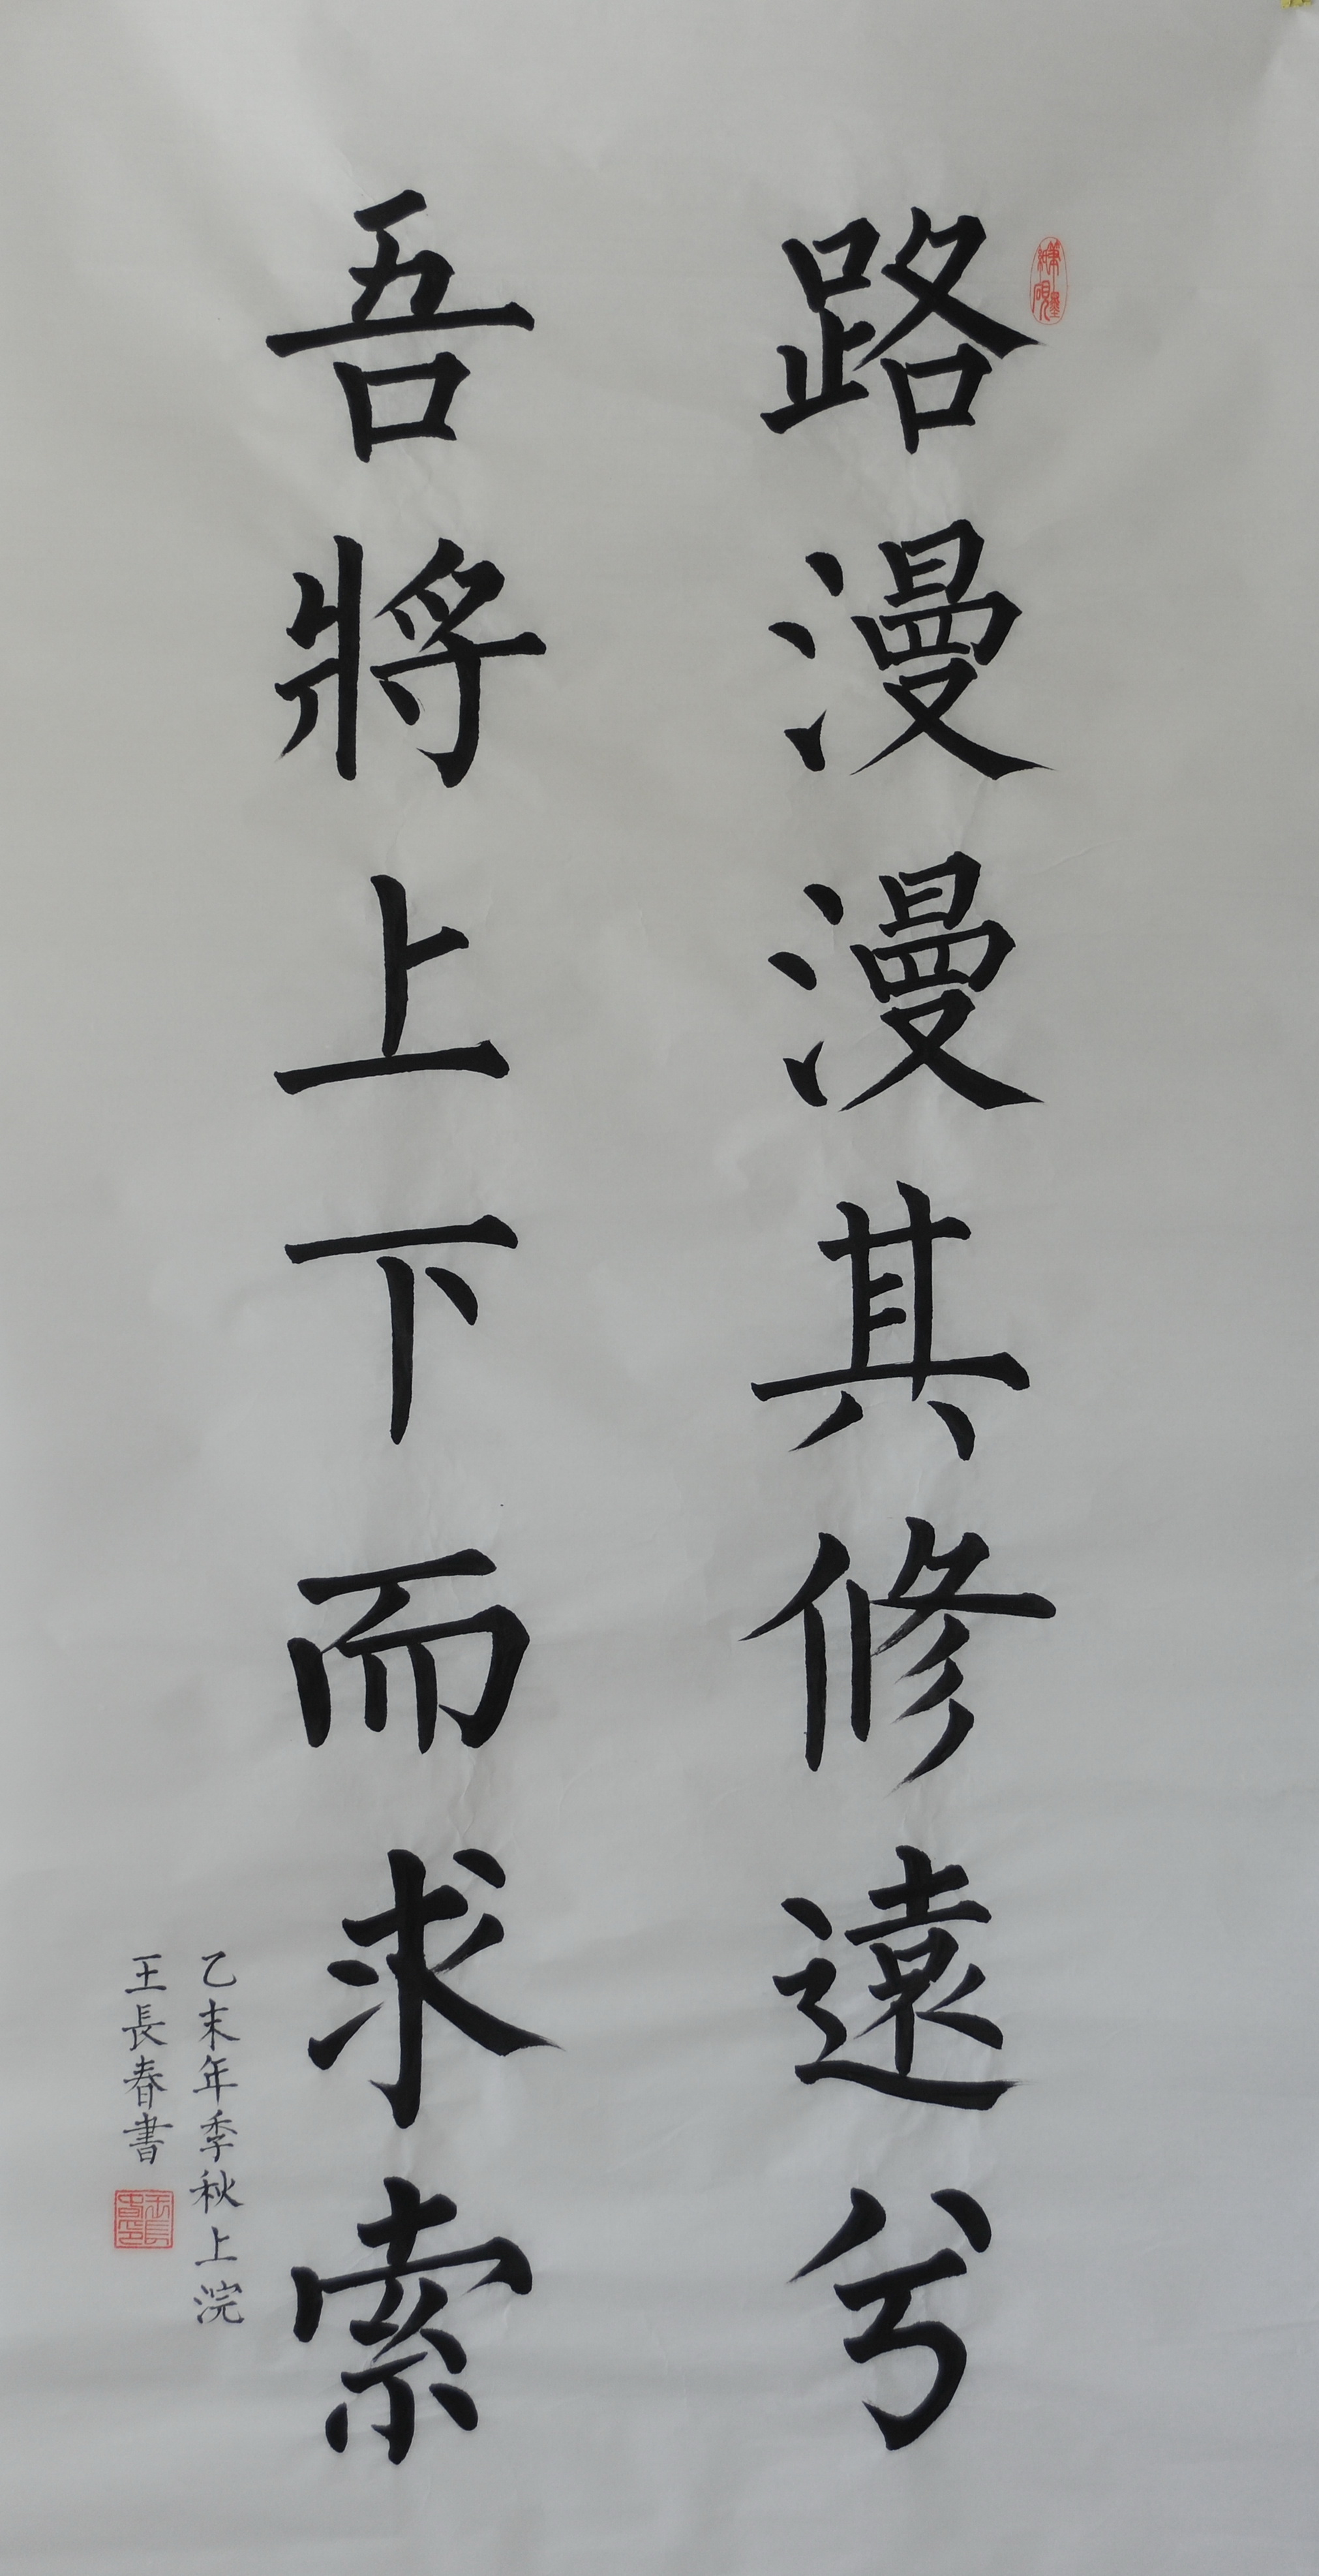 路漫漫其修遠兮
吾將上下而求索
乙未年季秋上浣
王長春書